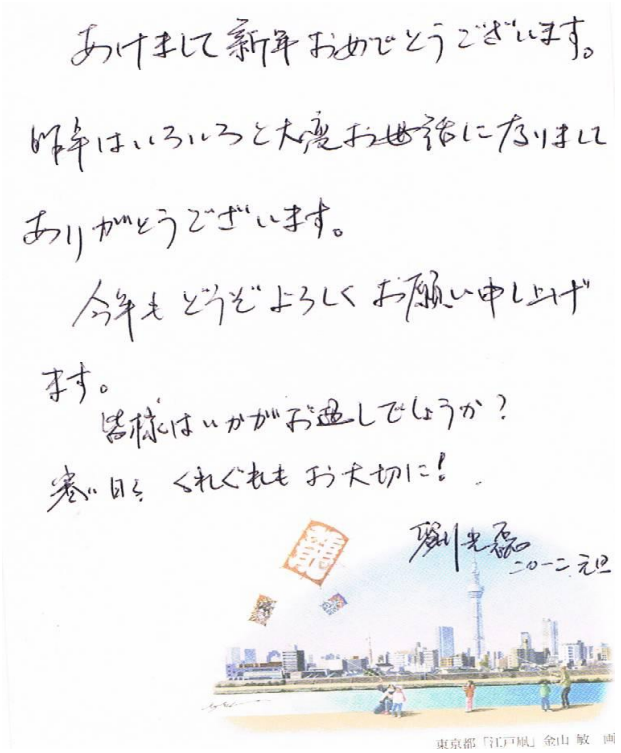 あけまして新年おめでとうございます。
昨年はいろいろと大変お世話になりまして
ありがとうございます。
今年もどうぞよろしくお願い申し上げ
ます。
皆様はいかがお過しでしょうか?
寒い日々 くれぐれもお大切に!
劉光磊
二〇一二.元旦
龍
東京都「江戸凧」金山 敏 画